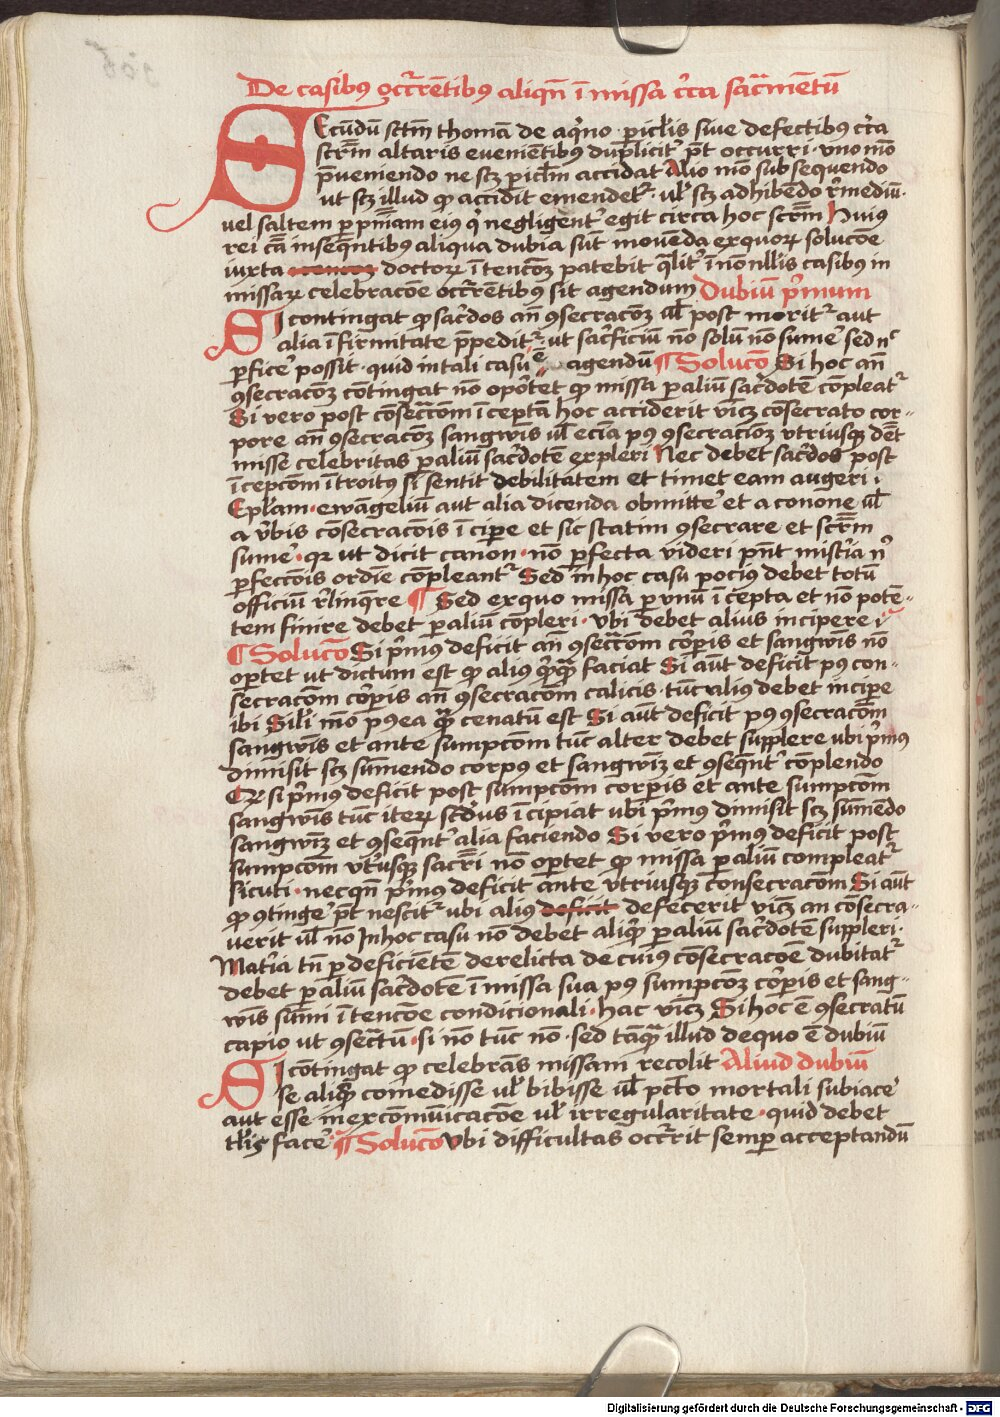 De casibꝰ ꝯcr̄rētibꝰ aliqn̄ ī missa cͥca sac̄mētū
Secūdū sctm̄ thomā de aqͥno ꝑicl̓is siue defectibꝰ cͥca
scr̄m̄ altaris eueniētibꝰ duplicit᷑ pt̄ occurri · vno mō
p̄ueniendo ne scꝫ ꝑicl̓m accidat Alio mō subsequendo
ut scꝫ illud qđ accidit emendet᷑ · ul̓ scꝫ adhibēdo r̓mediū ·
uel saltem ꝑ pn̄iam eiꝰ qͥ negligent᷑ egit circa hoc scr̄m̄ Huiꝰ
rei cā inseqn̄tibꝰ aliqua dubia sūt mouēda ex quoꝝ solucōe
iuxta doctoꝝ ītencōꝫ patebit ql̓it᷑ ī nōnllis casibus in
missaꝝ celebracōe occr̄rētibꝰ sit agendum Dubiū pͥmum
Si contingat qđ sac̓dos an̄ ꝯsecracōꝫ ul̓ post morit᷑ aut
alia īfirmitate p̄pedit᷑ · ut sac̓ficiū nō solū nō sume᷑ sed nͨ
ꝑfice᷑ possit · quid in tali casu ē agendū ¶ Solucō Si hoc an̄
ꝯsecracōꝫ cōtingat nō opōtet qđ missa ꝑ aliū sac̓dotē cōpleat᷑
Si vero post cōsecr̄cōm īceptā hoc acciderit vicꝫ consecrato cor-
pore an̄ ꝯsecracōꝫ sangwīs ul̓ eciā pꝰ ꝯsecracōꝫ vtriusqꝫ dēt
misse celebritas ꝑ aliū sac̓dotē expleri Nec debet sac̓dos post
īcepcōm ītroitꝰ si sentit debilitatem et timet eam augeri ·
Epl̓am · ewāgeliū aut alia dicenda obmitte᷑ et a canone ul̓
a v̓bis cōsecracōis īcipe et sic statim ꝯsecrare et scr̄m̄
sume᷑ · qr ut dicit canon · nō ꝑfecta videri pn̄t mist̓ia nͥ
ꝑfeccōis ordīe cōpleant᷑ Sed in hoc casu pociꝰ debet totū
officiū r̓linqͥre ¶ Sed ex quo missa ꝑ vnū īcepta et nō potē-
tem finire debet ꝑ aliū cōpleri · vbi debet alius incipere ·
¶ Solucō Si pͥmꝰ deficit an̄ ꝯsecr̄cōm corꝑis et sangwīs nō
oportet ut dictum est qđ aliꝰ qͥcqͣ faciat Si aūt deficit pꝰ con-
secracōm corꝑis an̄ ꝯsecracōm calicis · tūc aliꝰ debet incipe
ibi Sil̓i mō pꝰ ea qͣ cenatū est Si aūt deficit pꝰ ꝯsecracōm
sangwīs et ante sumpcōm tūc alter debet supplere ubi pͥmꝰ
dimisit scꝫ sumendo corpꝰ et sangwīꝫ et ꝯseqn̄t᷑ cōplendo
Et si pͥmꝰ deficit post sumpcōm corꝑis et ante sumpcōm
sangwīs tūc iteꝝ sc̄dus īcipiat ubi pͥmꝰ dimisit scꝫ sumēdo
sangwīꝫ et ꝯseqn̄t᷑ alia faciendo Si vero pͥmꝰ deficit post
sumpcōm vtͥusqꝫ sacr̄i nō oportet qđ missa ꝑ aliū compleat᷑
sicuti · nec qn̄ pͥmꝰ deficit ante vtriusqꝫ consecracōm Si aūt
qđ ꝯtinge᷑ pt̄ nescit᷑ ubi aliꝰ deficit defecerit vicꝫ an cōsecra-
uerit ul̓ nō In hoc casu nō debet aliqͥd ꝑ aliū sac̓dotē suppleri ·
Mat̓ia tn̄ ꝑ deficientē derelicta de cuius cōsecracōe dubitat᷑
debet ꝑ aliū sac̓dotē ī missa sua pꝰ sumpcōꝫ corꝑis et sang-
wīs sumi ītencōe condicionali · hac vicꝫ Si hoc ē ꝯsecratū
capio ut ꝯsecr̄tū · si nō tūc nō · sed tāqͣ illud de quo ē dubiū
Si cōtingat qđ celebrās missam recolit Aliud dubiū
se aliqͥd comedisse ul̓ bibisse ul̓ pctō mortali subiace᷑
aut esse in excōmunicacōe ul̓ irregularitate · quid debet
tl̓is face᷑ ¶ Solucō Vbi difficultas occr̄rit semꝑ acceptandū
Digitalisierung gefördert durch die Deutsche Forschungsgemeinschaft - DFG